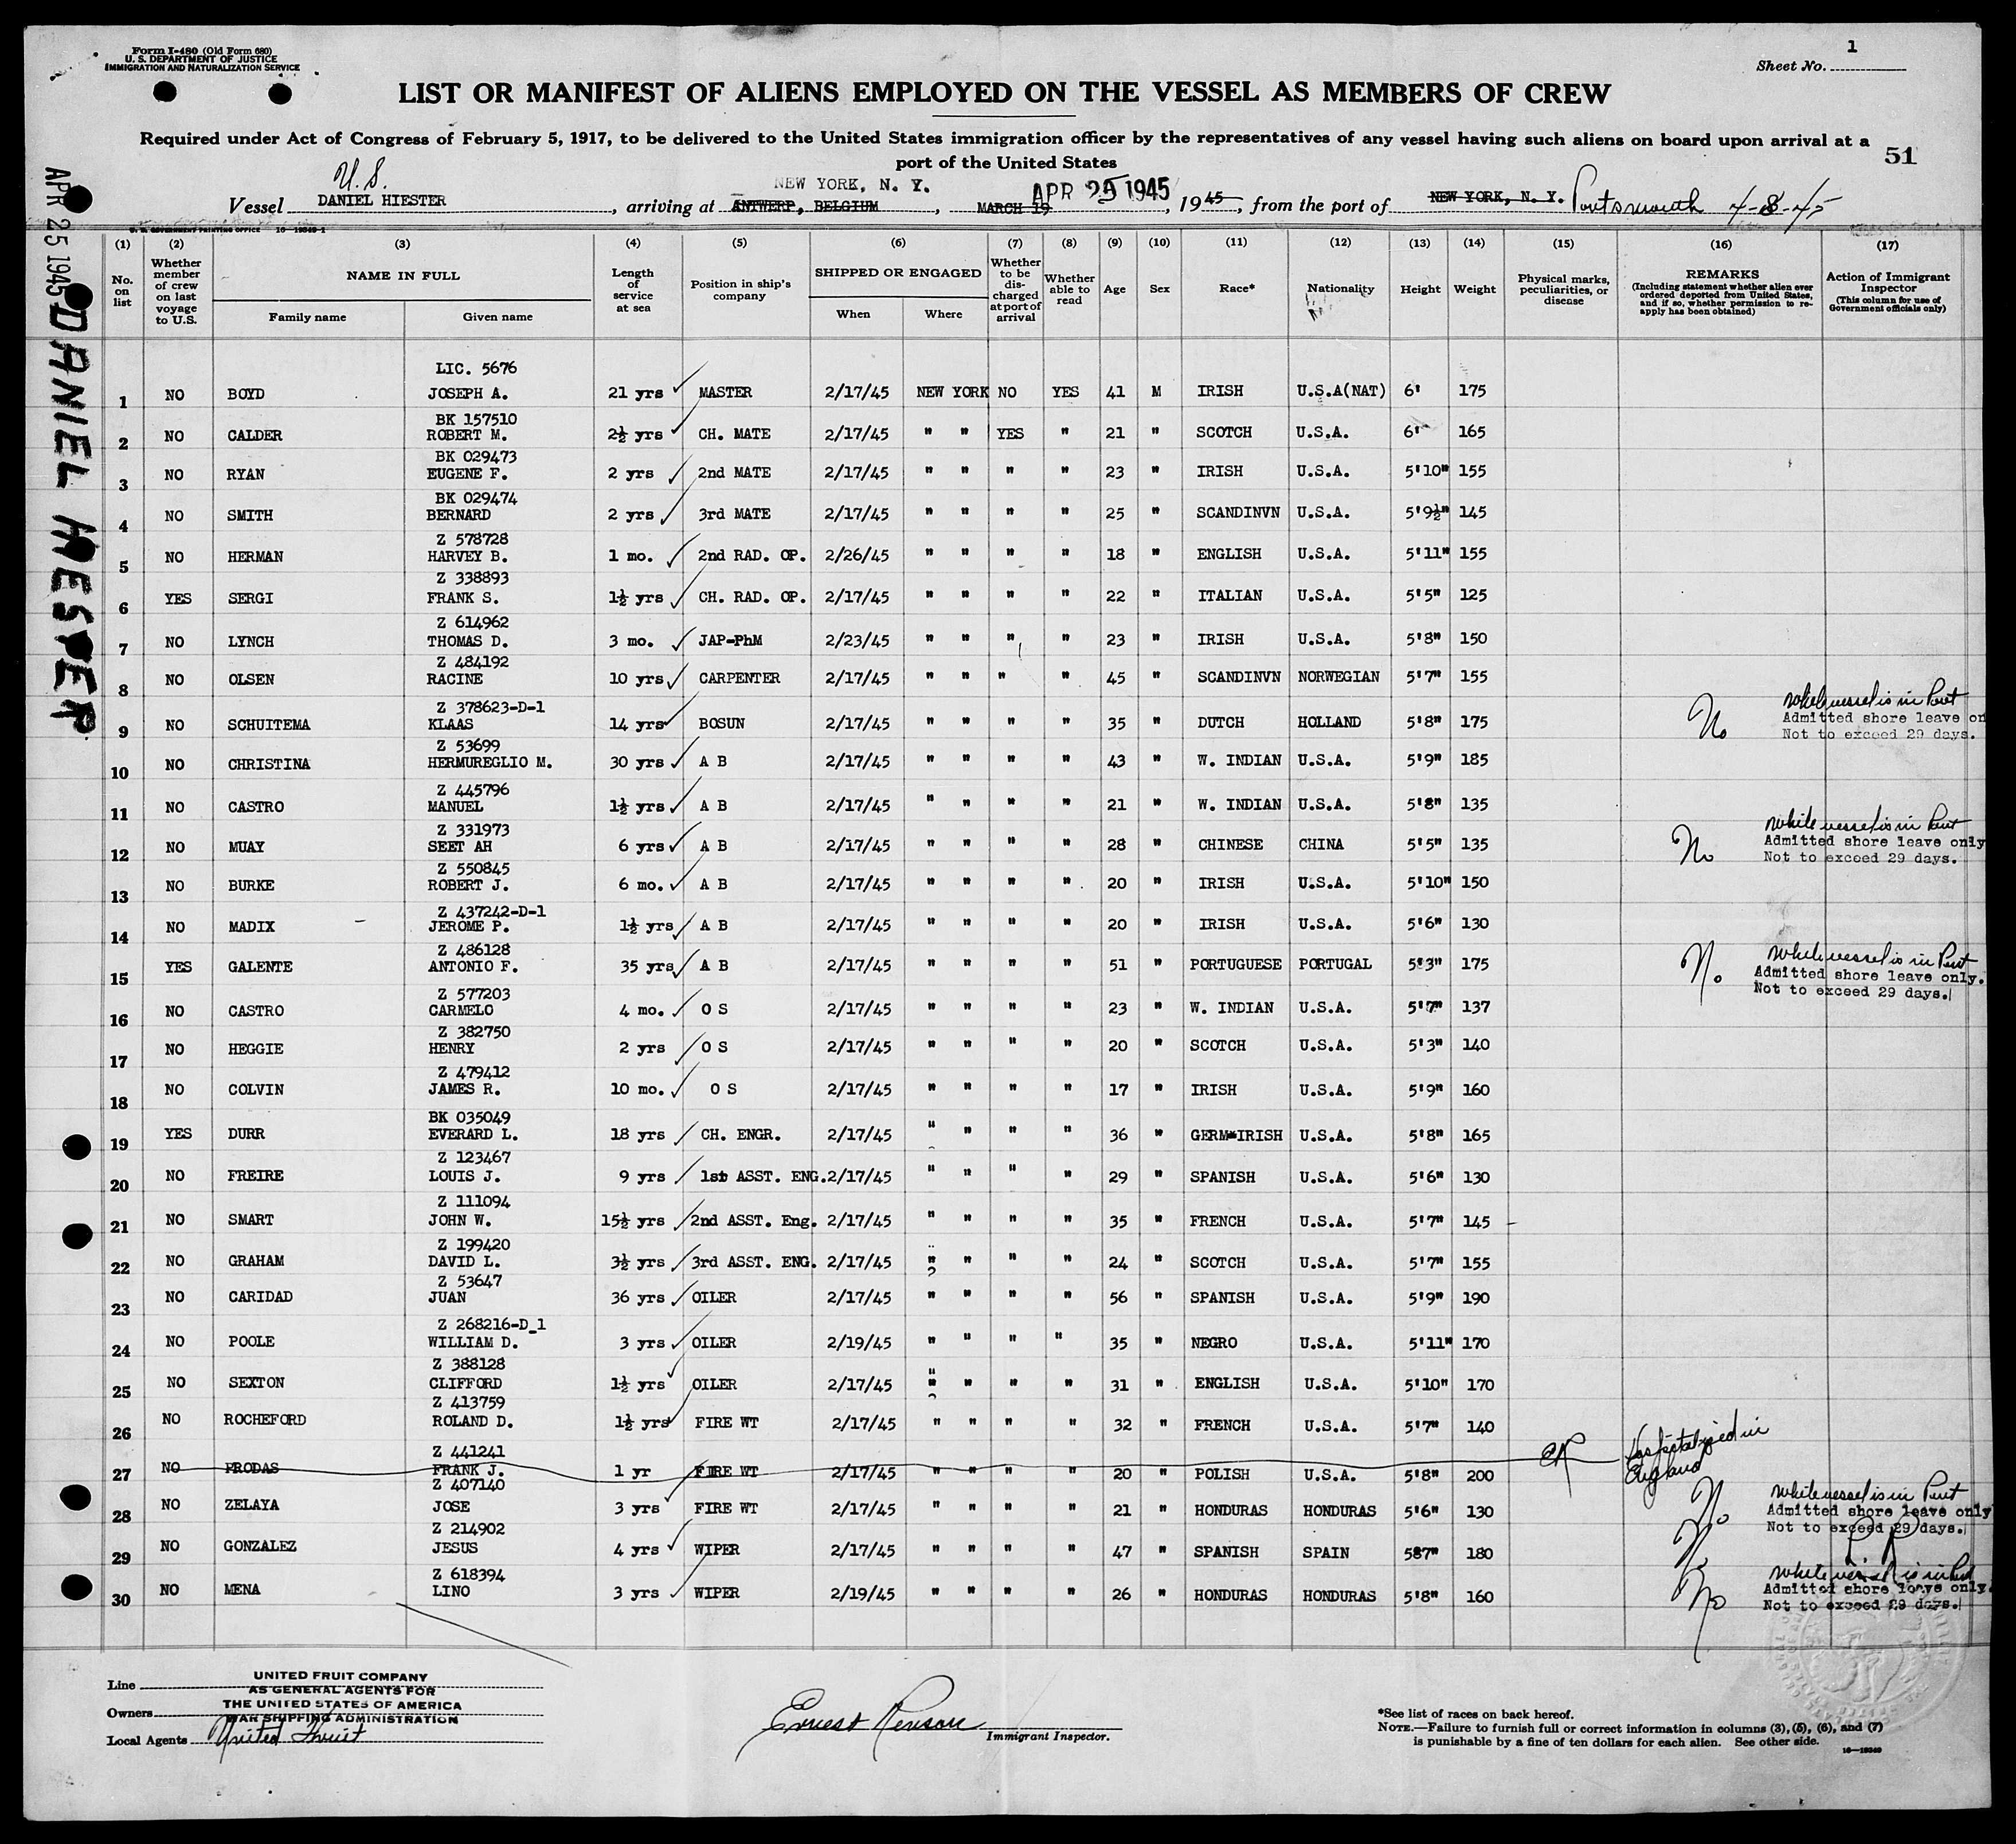 Form I-480 (Old Form 680)
U. S. DEPARTMENT OF JUSTICE
IMMIGRATION AND NATURALIZATION SERVICE
1
Sheet No.
LIST OR MANIFEST OF ALIENS EMPLOYED ON THE VESSEL AS MEMBERS OF CREW
Required under Act of Congress of February 5, 1917, to be delivered to the United States immigration officer by the representatives of any vessel having such aliens on board upon arrival at a
port of the United States
51
U.S. NEW YORK, N. Y. APR 25 1945
Vessel DANIEL HIESTER, arriving at ANTWERP, BELGIUM, MARCH 19, 1945, from the port of NEW YORK, N. Y. Portsmouth 4-8-45
U. S. GOVERNMENT PRINTING OFFICE 16-19349-1
APR 25 1945 DANIEL HESTER
(1) (2) (3) (4) (5) (6) (7) (8) (9) (10) (11) (12) (13) (14) (15) (16) (17)
No. on list
Whether member of crew on last voyage to U.S.
NAME IN FULL
Family name Given name
Length of service at sea
Position in ship's company
SHIPPED OR ENGAGED
When Where
Whether to be discharged at port of arrival
Whether able to read
Age
Sex
Race*
Nationality
Height
Weight
Physical marks, peculiarities, or disease
REMARKS
(Including statement whether alien ever ordered deported from United States, and if so, whether permission to reapply has been obtained)
Action of Immigrant Inspector
(This column for use of Government officials only)
LIC. 5676
1 NO BOYD JOSEPH A. 21 yrs MASTER 2/17/45 NEW YORK NO YES 41 M IRISH U.S.A(NAT) 6' 175
BK 157510
2 NO CALDER ROBERT M. 2½ yrs CH. MATE 2/17/45 " " YES " 21 " SCOTCH U.S.A. 6' 165
BK 029473
3 NO RYAN EUGENE F. 2 yrs 2nd MATE 2/17/45 " " " " 23 " IRISH U.S.A. 5'10" 155
BK 029474
4 NO SMITH BERNARD 2 yrs 3rd MATE 2/17/45 " " " " 25 " SCANDINVN U.S.A. 5'9½" 145
Z 578728
5 NO HERMAN HARVEY B. 1 mo. 2nd RAD. OP. 2/26/45 " " " " 18 " ENGLISH U.S.A. 5'11" 155
Z 338893
6 YES SERGI FRANK S. 1½ yrs CH. RAD. OP. 2/17/45 " " " " 22 " ITALIAN U.S.A. 5'5" 125
Z 614962
7 NO LYNCH THOMAS D. 3 mo. JAP-PhM 2/23/45 " " " " 23 " IRISH U.S.A. 5'8" 150
Z 484192
8 NO OLSEN RACINE 10 yrs CARPENTER 2/17/45 " " " " 45 " SCANDINVN NORWEGIAN 5'7" 155
Z 378623-D-1
9 NO SCHUITEMA KLAAS 14 yrs BOSUN 2/17/45 " " " " 35 " DUTCH HOLLAND 5'8" 175 No while vessel is in Port
Admitted shore leave on
Not to exceed 29 days.
Z 53699
10 NO CHRISTINA HERMUREGLIO M. 30 yrs A B 2/17/45 " " " " 43 " W. INDIAN U.S.A. 5'9" 185
Z 445796
11 NO CASTRO MANUEL 1½ yrs A B 2/17/45 " " " " 21 " W. INDIAN U.S.A. 5'8" 135
Z 331973
12 NO MUAY SEET AH 6 yrs A B 2/17/45 " " " " 28 " CHINESE CHINA 5'5" 135 No while vessel is in Port
Admitted shore leave only
Not to exceed 29 days.
Z 550845
13 NO BURKE ROBERT J. 6 mo. A B 2/17/45 " " " " 20 " IRISH U.S.A. 5'10" 150
Z 437242-D-1
14 NO MADIX JEROME P. 1½ yrs A B 2/17/45 " " " " 20 " IRISH U.S.A. 5'6" 130
Z 486128
15 YES GALENTE ANTONIO F. 35 yrs A B 2/17/45 " " " " 51 " PORTUGUESE PORTUGAL 5'3" 175 No while vessel is in Port
Admitted shore leave only.
Not to exceed 29 days.
Z 577203
16 NO CASTRO CARMELO 4 mo. O S 2/17/45 " " " " 23 " W. INDIAN U.S.A. 5'7" 137
Z 382750
17 NO HEGGIE HENRY 2 yrs O S 2/17/45 " " " " 20 " SCOTCH U.S.A. 5'3" 140
Z 479412
18 NO COLVIN JAMES R. 10 mo. O S 2/17/45 " " " " 17 " IRISH U.S.A. 5'9" 160
BK 035049
19 YES DURR EVERARD L. 18 yrs CH. ENGR. 2/17/45 " " " " 36 " GERM-IRISH U.S.A. 5'8" 165
Z 123467
20 NO FREIRE LOUIS J. 9 yrs 1st ASST. ENG. 2/17/45 " " " " 29 " SPANISH U.S.A. 5'6" 130
Z 111094
21 NO SMART JOHN W. 15½ yrs 2nd ASST. Eng. 2/17/45 " " " " 35 " FRENCH U.S.A. 5'7" 145
Z 199420
22 NO GRAHAM DAVID L. 3½ yrs 3rd ASST. ENG. 2/17/45 " " " " 24 " SCOTCH U.S.A. 5'7" 155
Z 53647
23 NO CARIDAD JUAN 36 yrs OILER 2/17/45 " " " " 56 " SPANISH U.S.A. 5'9" 190
Z 268216-D_1
24 NO POOLE WILLIAM D. 3 yrs OILER 2/19/45 " " " " 35 " NEGRO U.S.A. 5'11" 170
Z 388128
25 NO SEXTON CLIFFORD 1½ yrs OILER 2/17/45 " " " " 31 " ENGLISH U.S.A. 5'10" 170
Z 413759
26 NO ROCHEFORD ROLAND D. 1½ yrs FIRE WT 2/17/45 " " " " 32 " FRENCH U.S.A. 5'7" 140
Z 441241
27 NO PRODAS FRANK J. 1 yr FIRE WT 2/17/45 " " " " 20 " POLISH U.S.A. 5'8" 200 ER Hospitalized in England
Z 407140
28 NO ZELAYA JOSE 3 yrs FIRE WT 2/17/45 " " " " 21 " HONDURAS HONDURAS 5'6" 130 No while vessel is in Port
Admitted shore leave only
Not to exceed 29 days.
Z 214902
29 NO GONZALEZ JESUS 4 yrs WIPER 2/17/45 " " " " 47 " SPANISH SPAIN 587" 180 No
Z 618394
30 NO MENA LINO 3 yrs WIPER 2/19/45 " " " " 26 " HONDURAS HONDURAS 5'8" 160 No while vessel is in Port
Admitted shore leave only.
Not to exceed 29 days.
Line UNITED FRUIT COMPANY
AS GENERAL AGENTS FOR
Owners THE UNITED STATES OF AMERICA
WAR SHIPPING ADMINISTRATION
Local Agents United Fruit
Ernest Renson
Immigrant Inspector.
*See list of races on back hereof.
NOTE.—Failure to furnish full or correct information in columns (3), (5), (6), and (7)
is punishable by a fine of ten dollars for each alien. See other side.
16—19349